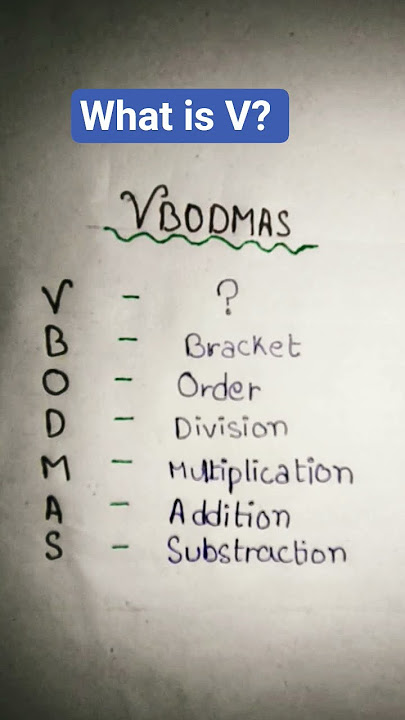 What is V?
VBODMAS
V - ?
B - Bracket
O - Order
D - Division
M - Multiplication
A - Addition
S - Substraction